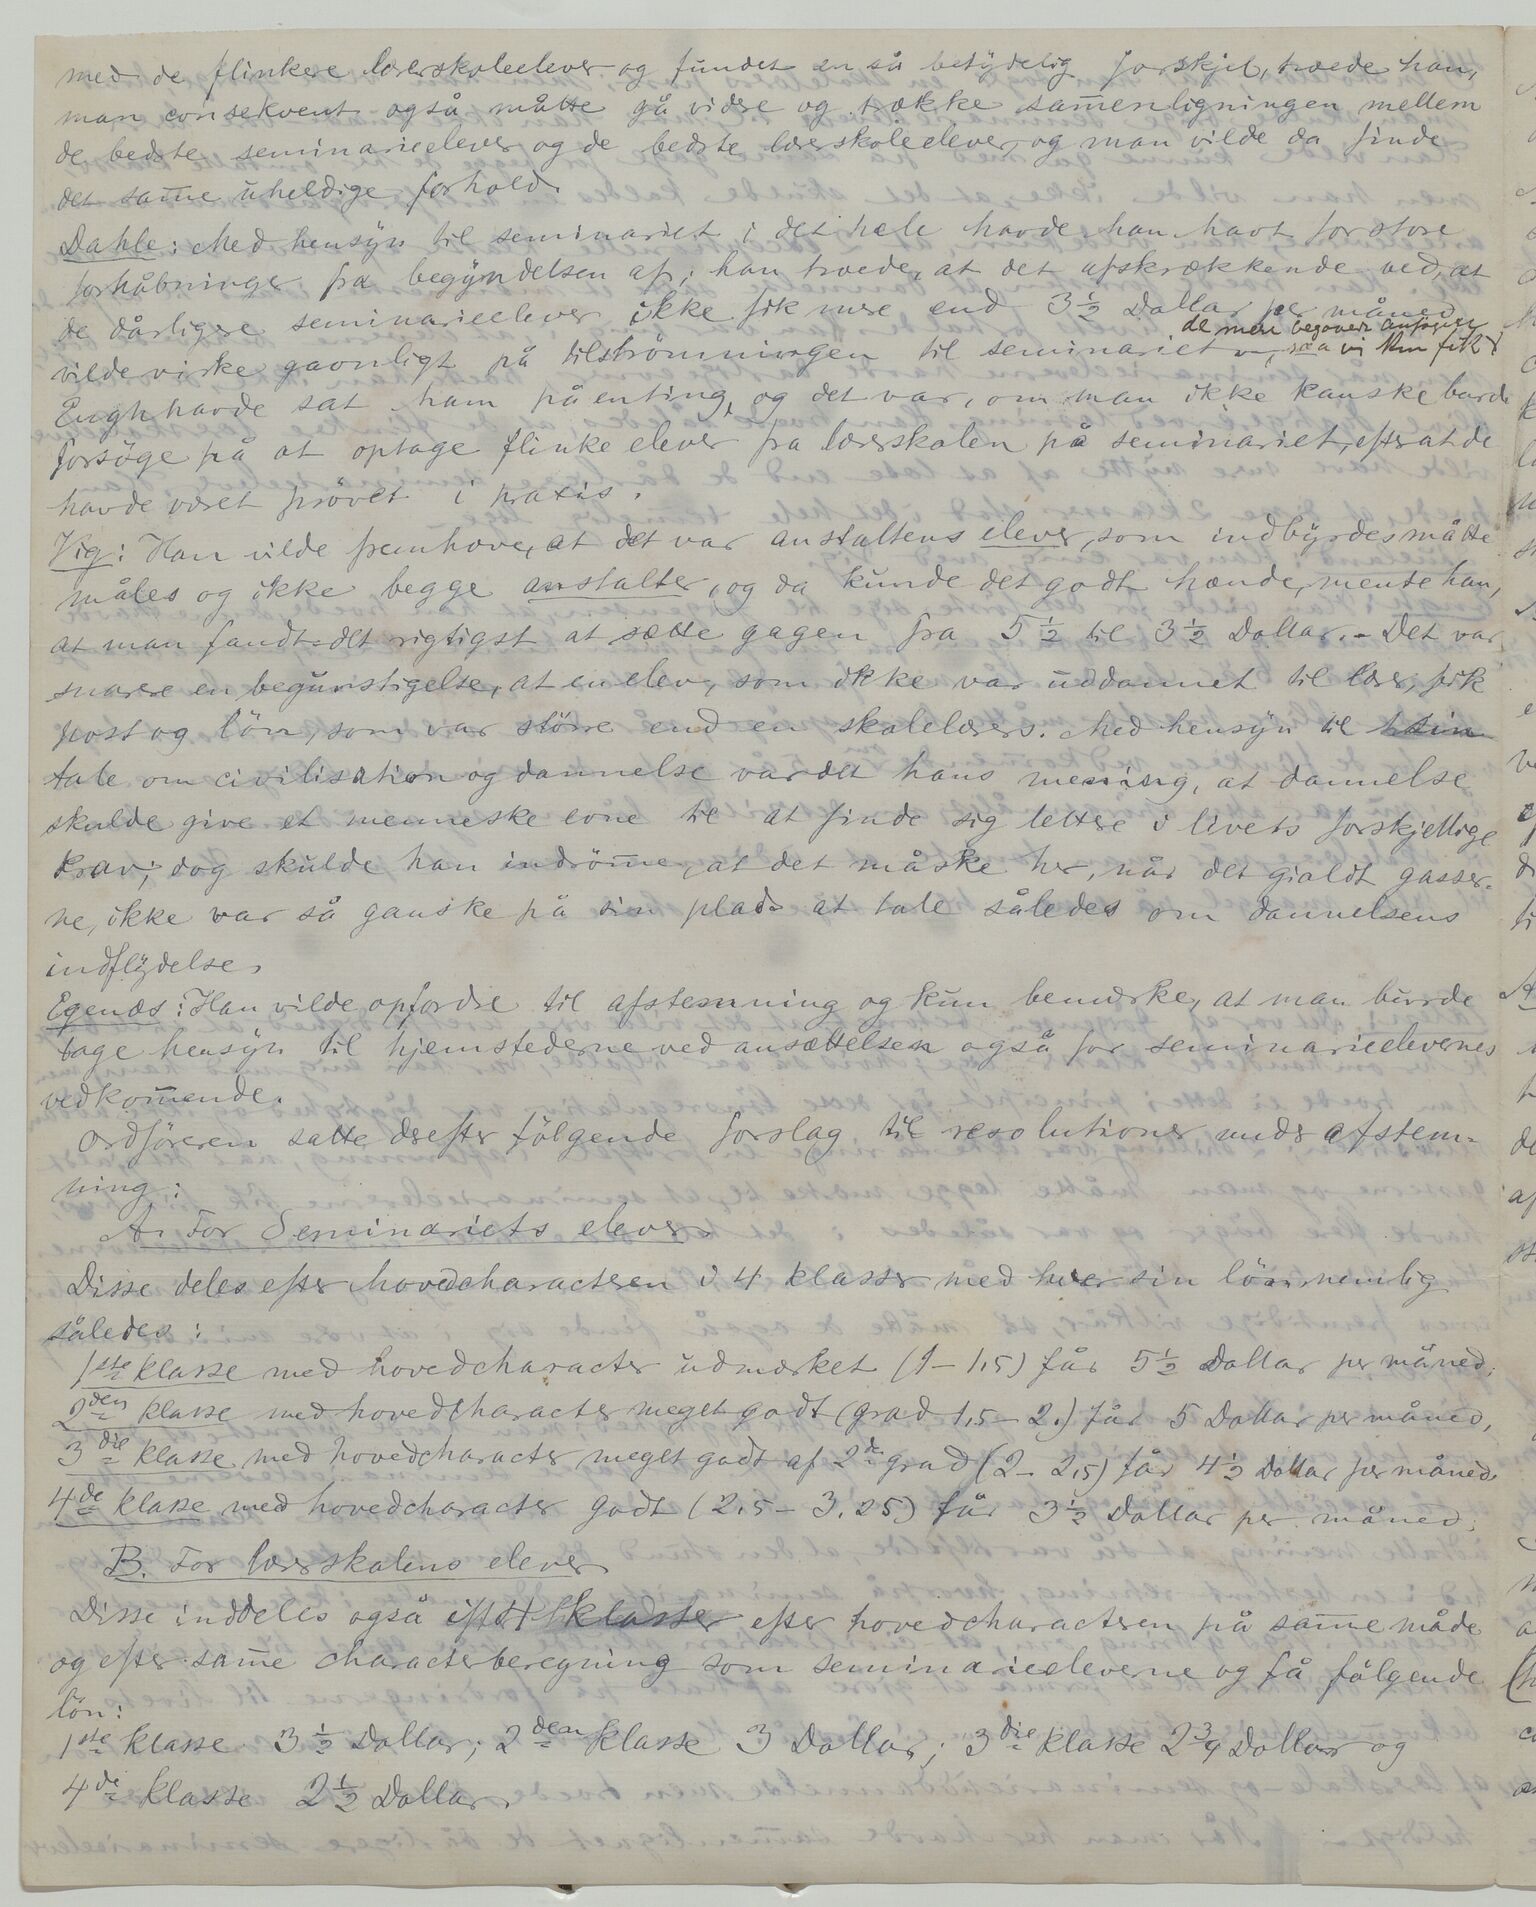 med de flinkere lærerskoleelever og fundet en så betydelig forskjel, troede han,
man consekvent også måtte gå videre og trække sam̄enligningen mellem
de bedste seminarieelever og de bedste lærerskoleelever, og man vilde da finde
det sam̄e uheldige forhold.
Dahle: Med hensyn til seminariet i det hele havde han havt for store
forhåbninger fra begyndelsen af; han troede, at det afskrækkende ved, at
de dårligere seminarieelever ikke fik mere end 3 1/2 Dollar per måned
de men begavede
vilde virke gavnligt på tilströmningen til seminariet så vi kun fik
Engh havde sat ham på en ting, og det var, om man ikke kanske burde
forsöge på at optage flinke elever fra lærerskolen på seminariet, efterat de
havde været prövet i praxis.
Vig: Han vilde fremhæve, at det var anstaltens elever, som indbyrdes måtte
måles og ikke begge anstalter, og da kunde det godt hænde, mente han,
at man fandt det rigtigst at sætte gagen fra 5 1/2 til 3 1/2 Dollar. - Det var
snarere en begunstigelse, at en elev, som ikke var uddannet til lærer, fik
post og lön, som var större end en skolelærers. Med hensyn til sin
tale om civilisation og dannelse var det hans mening, at dannelse
skulde give et menneske evne til at finde sig lettere i livets forskjellige
krav; dog skulde han indröm̄e, at det måske her, når det gjaldt gasser-
ne, ikke var så ganske på sin plads at tale således om dannelsens
indflydelse.
Egenæs: Han vilde opfordre til afstemning og kun bemærke, at man burde
tage hensyn til hjemstederne ved ansættelsen også for seminarieelevernes
vedkom̄ende.
Ordföreren satte derefter fölgende forslag til resolutioner under afstem-
ning:
A. For Seminariets elever.
Disse deles efter hovedcharacteren i 4 klasser med hver sin lön nemlig
således:
1ste klasse med hovedcharacter udmærket (1 - 1,5) får 5 1/2 Dollar per måned;
2den klasse med hovedcharacter meget godt (grad 1,5 - 2.) får 5 Dollar per måned,
3die klasse med hovedcharacter meget godt af 2de grad (2 - 2,5) får 4 1/2 Dollar per måned.
4de klasse med hovedcharacter godt (2,5 - 3,25) får 3 1/2 Dollar per måned.
B. For lærerskolens elever
Disse inddeles også i 4 klasser efter hovedcharacteren på sam̄e måde
og efter sam̄e characterberegning som seminarieeleverne og få fölgende
lön:
1ste klasse 3 1/2 Dollar; 2den klasse 3 Dollar; 3die klasse 2 3/4 Dollar og
4de klasse 2 1/2 Dollar.